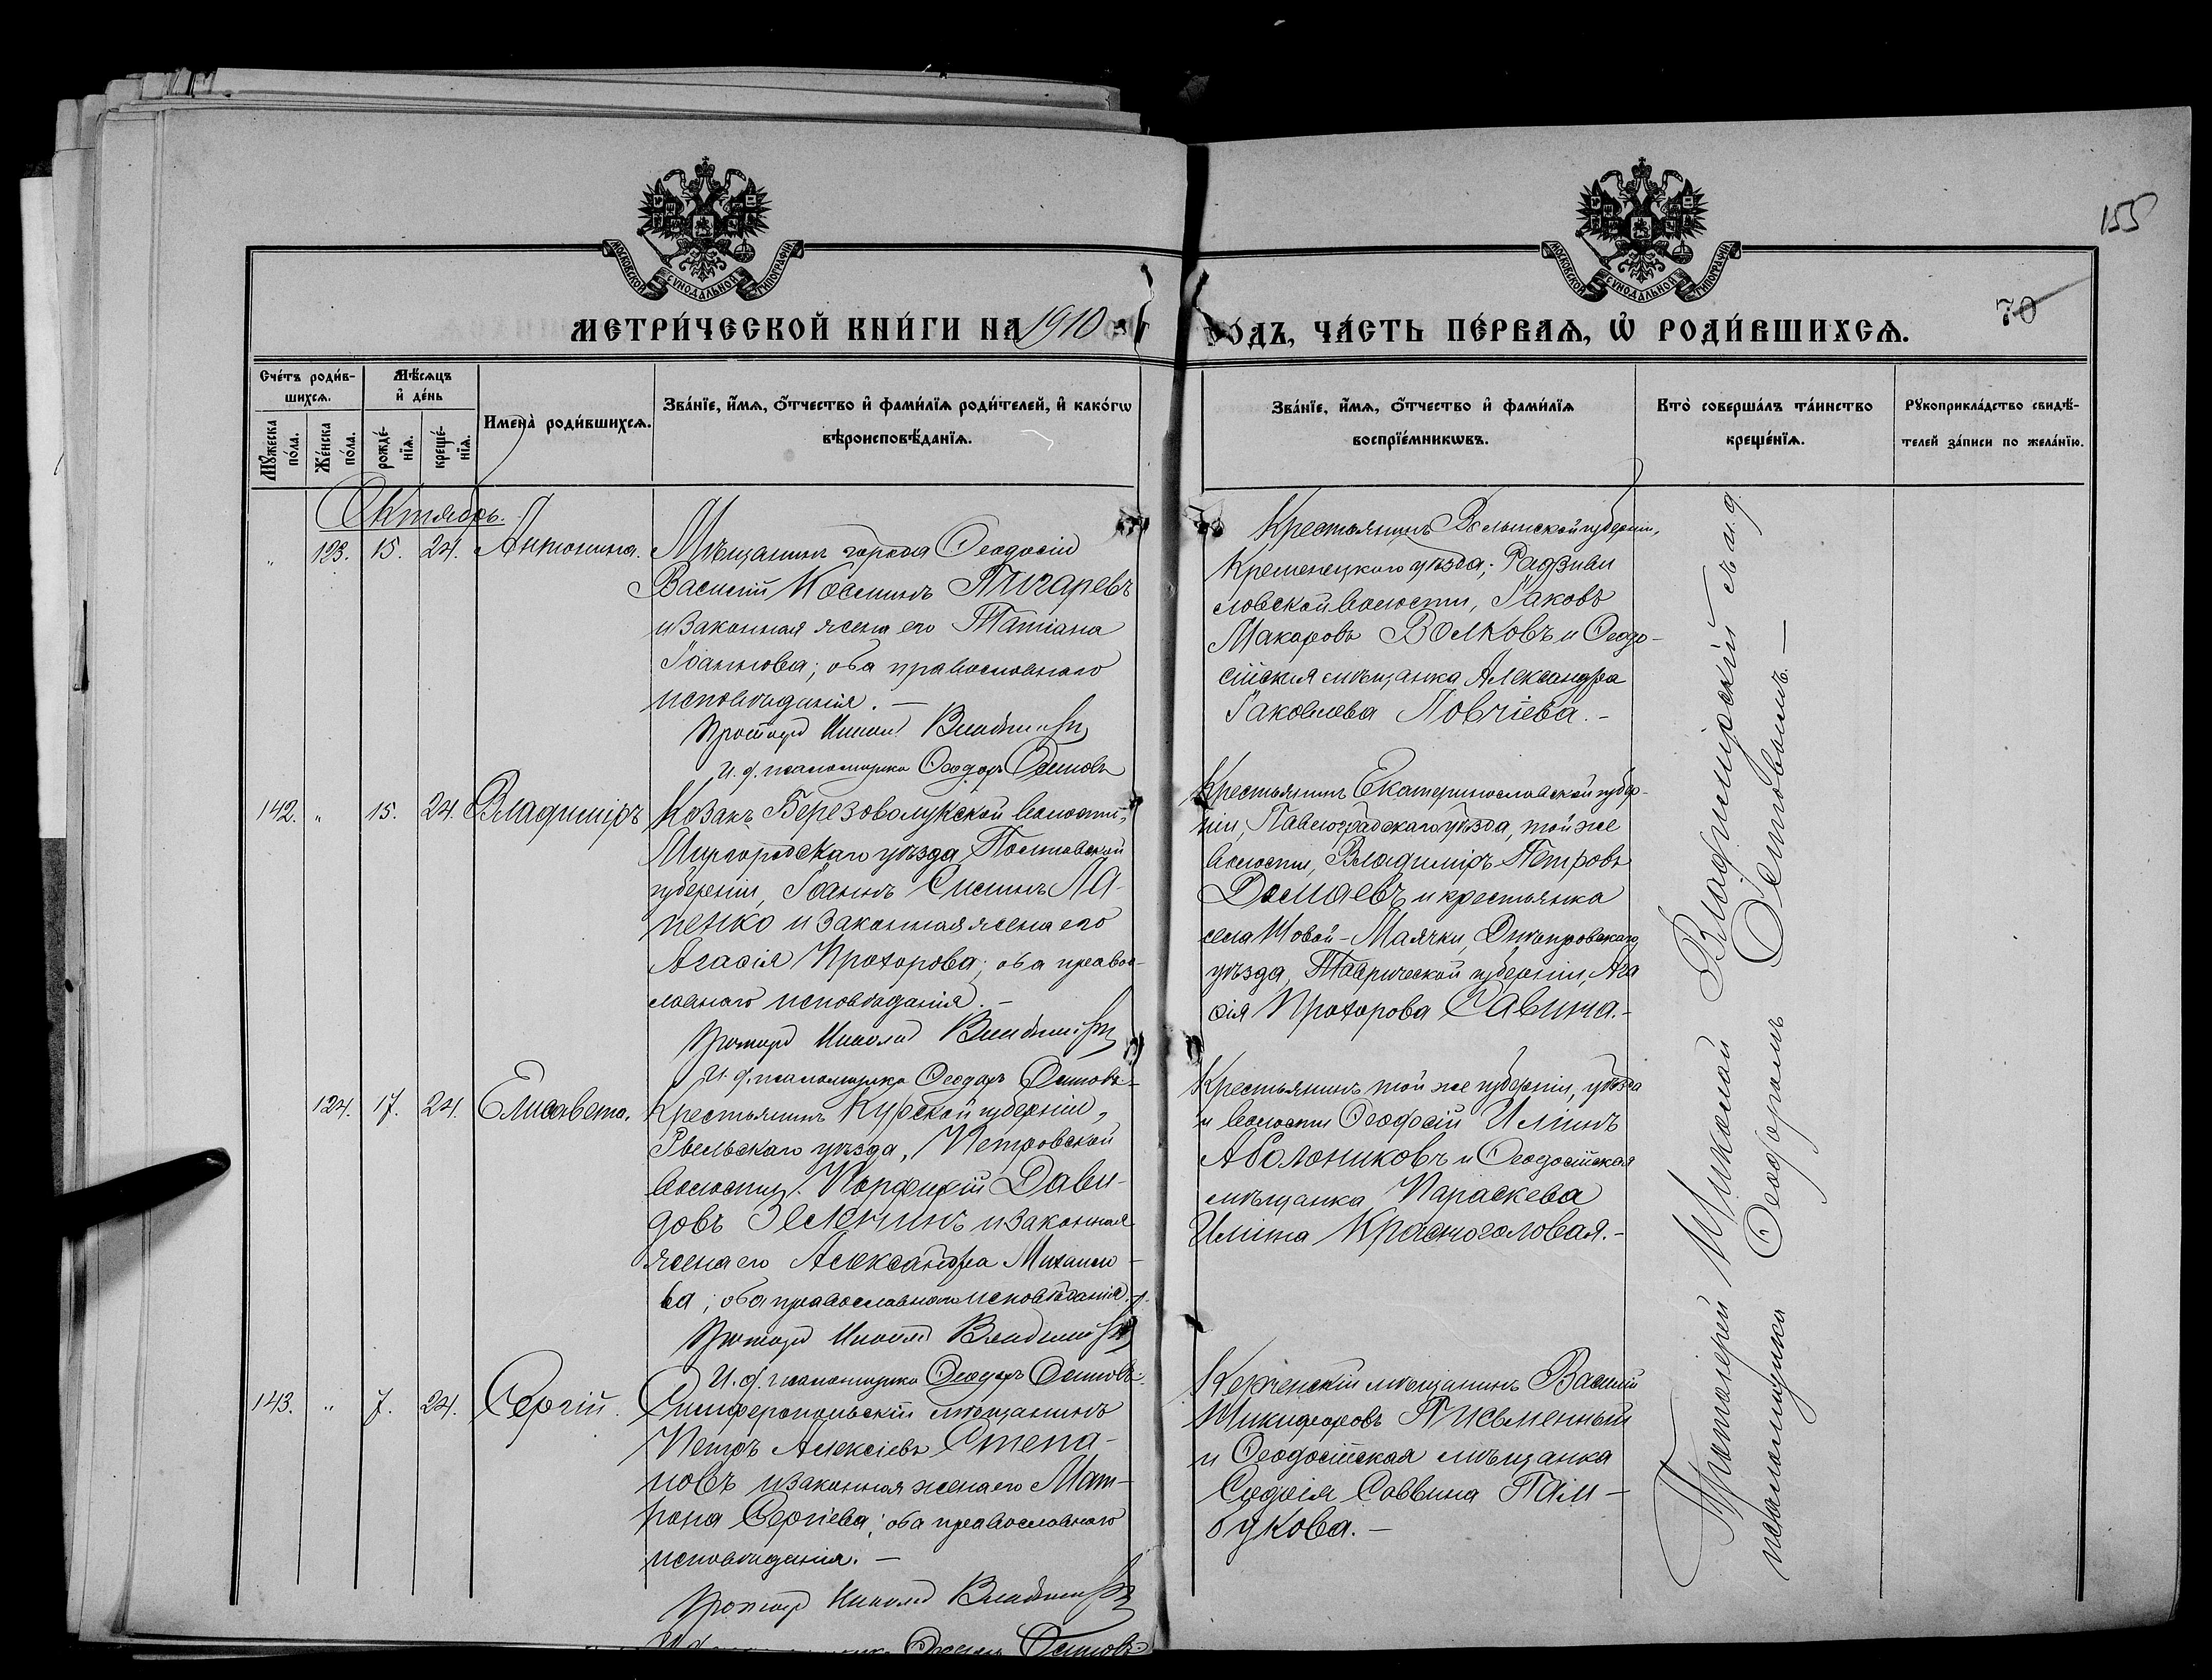 155
70
МОСКОВСКОЙ СѴНОДАЛЬНОЙ ТИПОГРАФІИ
МОСКОВСКОЙ СѴНОДАЛЬНОЙ ТИПОГРАФІИ
МЕТРИ́ЧЕСКОЙ КНИ́ГИ НА 1910
ГО́ДЪ, ЧА́СТЬ ПЕ́РВАѦ, Ѽ РОДИ́ВШИХСѦ.
Сче́тъ роди́в-
шихсѧ.
Мꙋ́жеска по́ла.
Же́нска по́ла.
Мѣ́сѧцъ
и҆ де́нь
рожде́-
нїѧ.
креще́-
нїѧ.
Имена̀ роди́вшихсѧ.
Зва́нїе, и҆́мѧ, ѻ҆́тчество и҆ фами́лїѧ роди́телей, и҆ како́гѡ
вѣроисповѣ́данїѧ.
Зва́нїе, и҆́мѧ, ѻ҆́тчество и҆ фами́лїѧ
воспрїе́мникѡвъ.
Кто̀ соверша́лъ та́инство
креще́нїѧ.
Рꙋкоприкла́дство свидѣ́-
телей за́писи по жела́нїю.
Октябрь.
" 123. 15. 24. Антонина.
Мѣщанинъ города Ѳеодосіи
Василій Косминъ Пигаревъ
и законная жена его Татіана
Іоаннова; оба православнаго
исповѣданія. —
Протоіер Никола Владимірскій
И. д. псаломщика Ѳеодоръ Осиповъ
Крестьянинъ Волынской губерніи,
Кременецкаго уѣзда, Радзиви
ловской волости, Іаковъ
Макаровъ Волковъ и Ѳеодо-
сійская мѣщанка Александра
Іаковлева Ловчіева. -
142. " 15. 24. Владиміръ
Козакъ Березоволукской волости,
Миргородскаго уѣзда, Полтавской
губерніи, Іоаннъ Силинъ Ла-
пенко и законная жена его
Агаѳія Прохорова; оба право-
славнаго исповѣданія. -
Протоіер Никола Владимірскій
И. д. псаломщика Ѳеодоръ Осиповъ
Крестьянинъ Екатеринославской губер-
ніи, Павлоградскаго уѣзда, той же
волости, Владиміръ Петровъ
и крестьянка
села Новой-Маячки, Днѣпровскаго
уѣзда, Таврической губерніи, Ага
ѳія Прохорова Савина. -
124. 17. 24. Елисавета.
Крестьянинъ Курской губерніи,
Рыльскаго уѣзда, Петровской
волости, Порфирій Дави-
довъ и законная
жена его Александра Михаило-
ва; оба православнаго исповѣданія.
Протоіер Никола Владимірскій
И. д. псаломщика Ѳеодоръ Осиповъ
Крестьянинъ той же губерніи, уѣзда
и волости Ѳеодосій Илiинъ
Аболониковъ и Ѳеодосійская
мѣщанка Параскева
Илiина Красноголовая. -
143. " 7. 24. Сергій.
Симферопольскій мѣщанинъ
Петръ Алексіевъ Степа-
новъ и законная жена его Мат-
рона Сергіева; оба православнаго
исповѣданія. —
Протоіер Никола Владимірскій
Ѳеодоръ Осиповъ
Керченскій мѣщанинъ Василій
Никифоровъ Письменный
и Ѳеодосійская мѣщанка
Софія Саввина Пам-
букова. —
Протоіерей Николай Владимірскій съ и. д.
псаломщика Ѳеодоромъ Осиповымъ. —